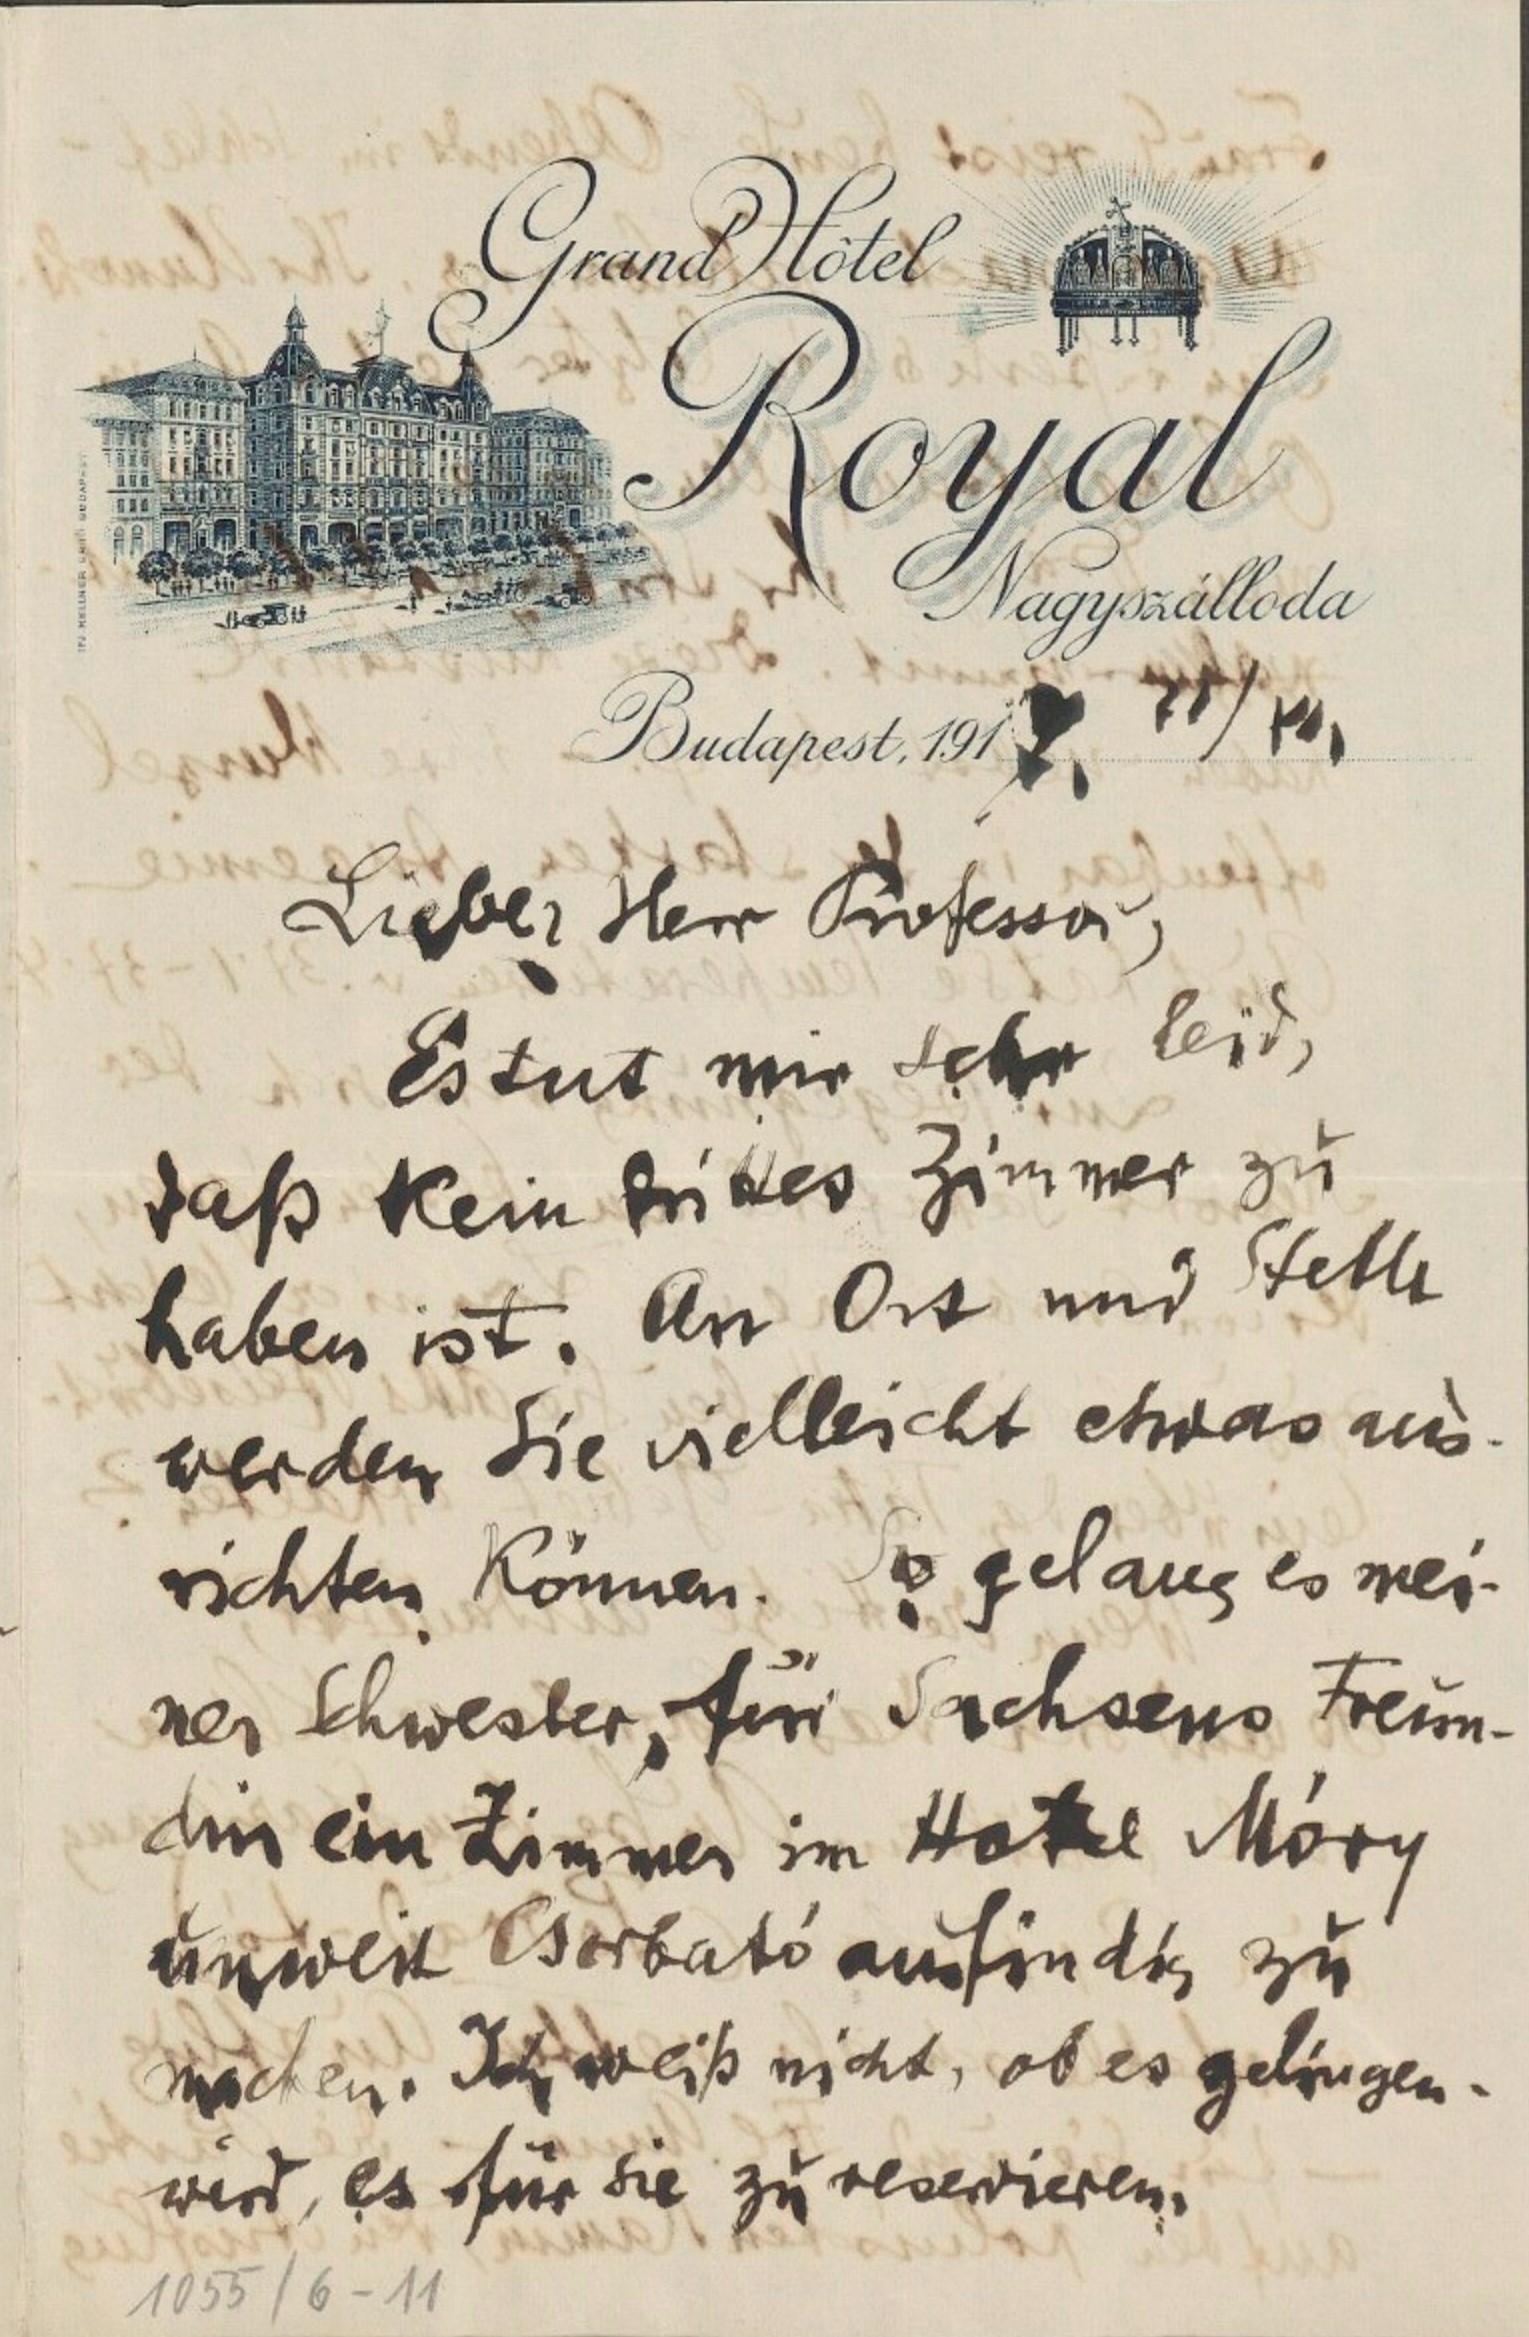 Grand Hôtel
Royal
Nagyszálloda
Budapest, 191
Lieber Herr Professor,
Es tut mir sehr leid,
daß kein drittes Zimmer zu
haben ist. An Ort und Stelle
werden Sie vielleicht etwas aus-
richten können. So gelang es mei-
ner Schwester, für Sachsens Freun-
din ein Zimmer im Hotel Móry
unweit Csorbató ausfindig zu
machen. Ich weiß nicht, ob es gelingen
wird, es für sie zu reservieren.
1055/6-11